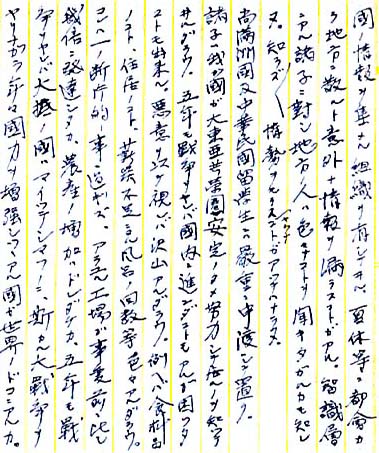 国ノ情報ヲ集メル組織ヲ有シテヰル。夏休等ニ都会カ
ラ地方ニ散ルト意外ナ情報ヲ漏ラスコトガアル。智識層
ニアル諸子ニ対シ地方ノ人ハ色々ナコトヲ聞キタガルカモ知レ
ヌ。知ラズ〱情勢ヲ コトガアッテハナラヌ。
尚満洲国及中華民国留学生ニ厳重ニ申渡シ置ク。
諸子ハ我ガ国ガ大東亜共栄圏安定ノタメ努力シテ居ルノヲ知ラ
ルダラウ。五年モ戦争ヲヤレバ国内ニ進ンダコトモアルガ困ッタ
コトモ出来ル。悪意ヲ以テ視レバ沢山アルダラウ。例ヘバ食料品
ノコト、住居ノコト、薪炭不足ニヨル風呂ノ回数等色々アルダラウ。
コレハ一ノ断片的ノ事ニ過ギズ、アラユル工場ガ事変前ニ比シ
幾倍ニ発達シタカ、農産ノ増加ハドレダケカ。五年モ戦
争ヲヤレバ大抵ノ国ハマイッテシマフノニ、斯カル大戦争ヲ
ヤリナガラ年々国力ヲ増強シツツアル国ガ世界ノドコニアルカ。